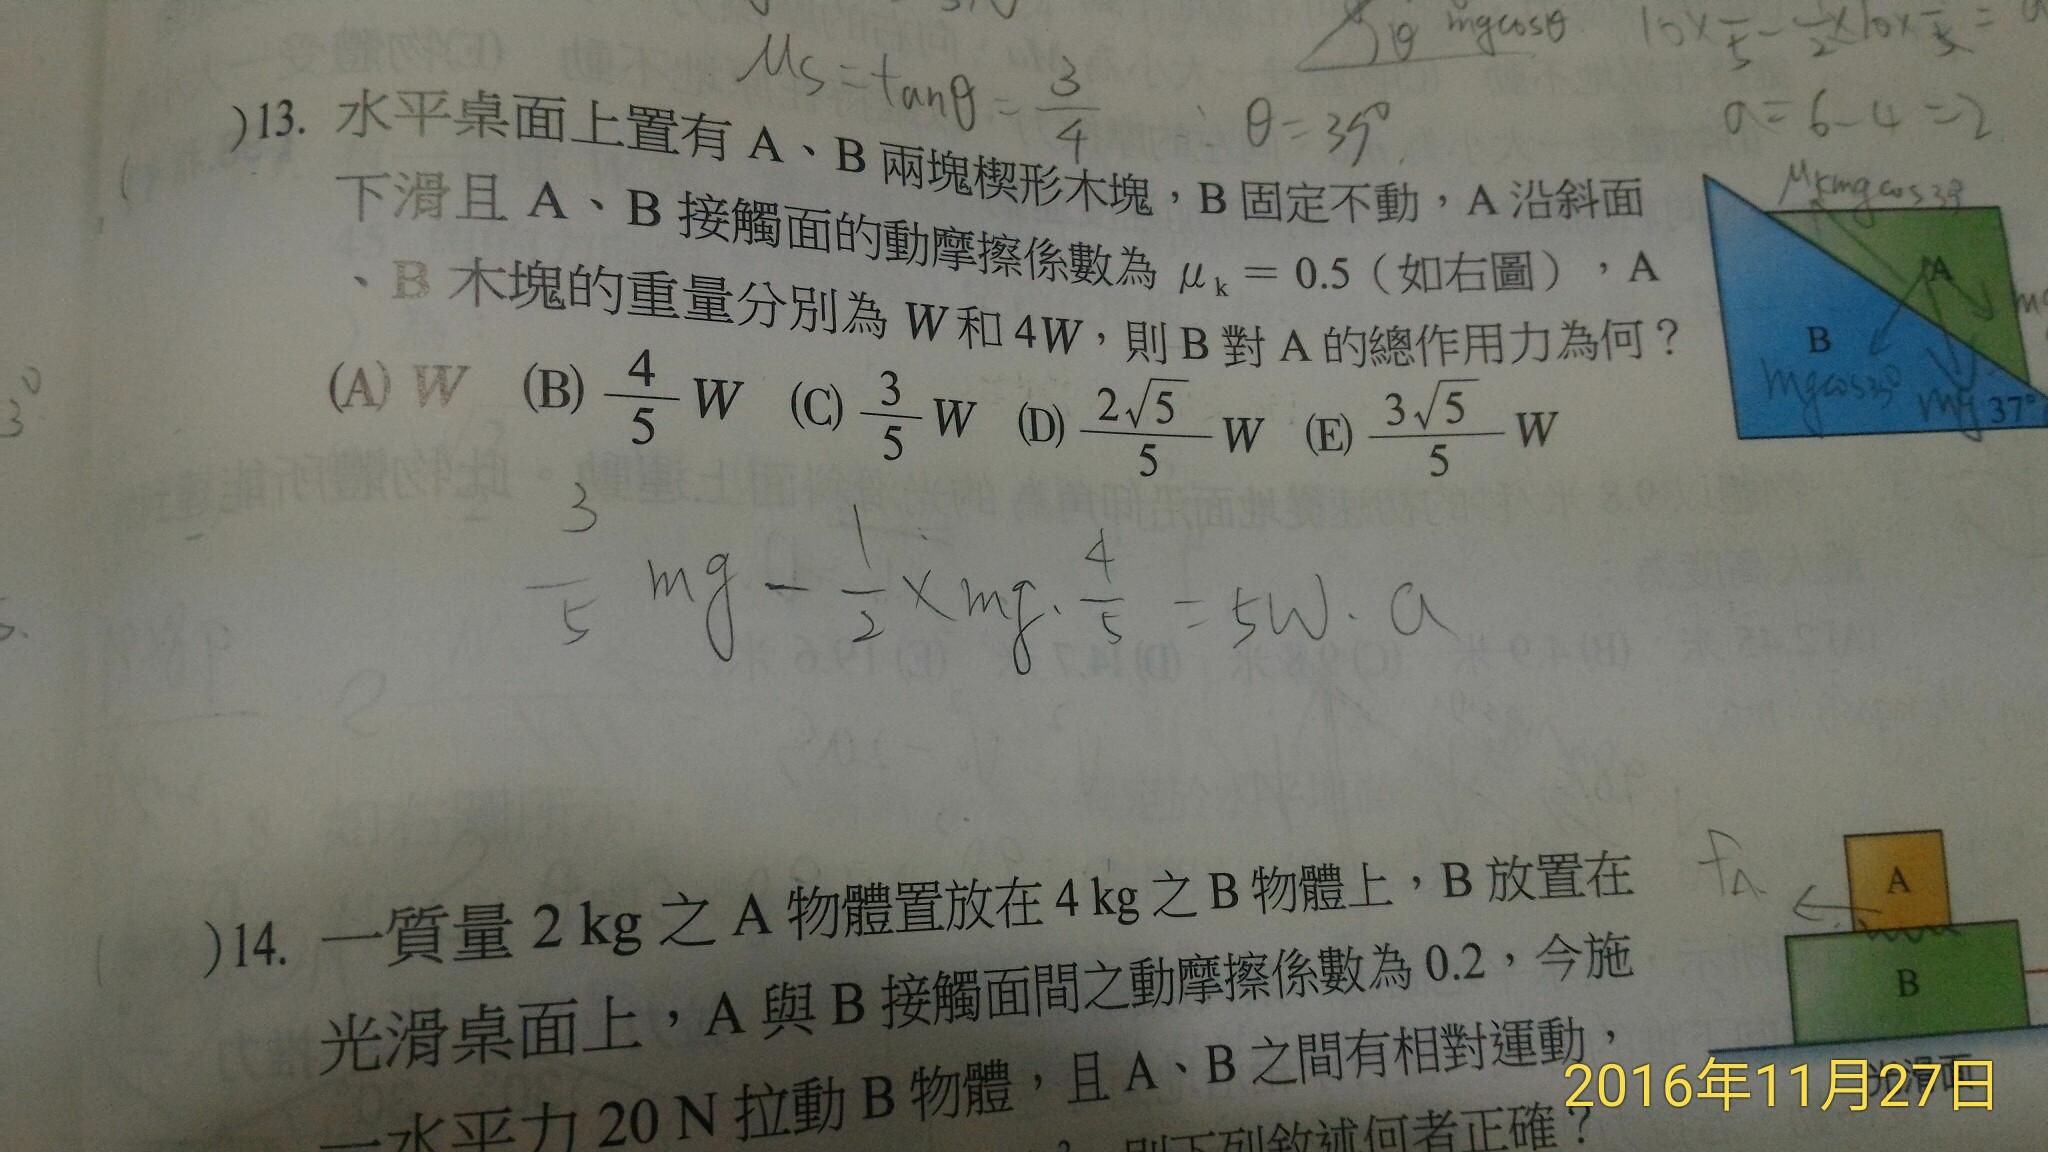 mgcosθ
μs = tanθ = 3/4 ∴ θ = 37°
a = 6 - 4 = 2
)13. 水平桌面上置有 A、B 兩塊楔形木塊，B 固定不動，A 沿斜面
下滑且 A、B 接觸面的動摩擦係數為 μk = 0.5（如右圖），A
、B 木塊的重量分別為 W 和 4W，則 B 對 A 的總作用力為何？
(A) W (B) 4/5 W (C) 3/5 W (D) 2√5/5 W (E) 3√5/5 W
A
B
mg
37°
3/5 mg - 1/2 × mg · 4/5 = 5W · a
)14. 一質量 2 kg 之 A 物體置放在 4 kg 之 B 物體上，B 放置在
光滑桌面上，A 與 B 接觸面間之動摩擦係數為 0.2，今施
一水平力 20 N 拉動 B 物體，且 A、B 之間有相對運動，
則下列敘述何者正確？
fA
A
B
光滑面
2016年11月27日